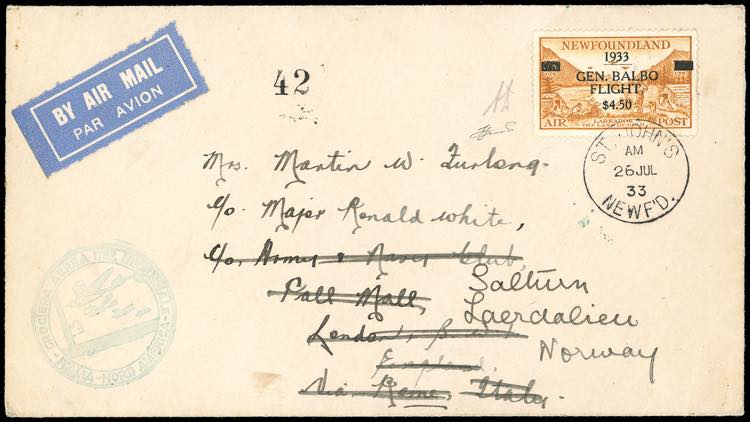 BY AIR MAIL
PAR AVION
42
NEWFOUNDLAND
1933
GEN. BALBO
FLIGHT.
$4.50
LABRADOR
THE LAND OF GOLD
AIR POST
ST. JOHN'S
AM
26 JUL
33
NEWF'D.
Mrs. Martin W. Furlong.
c/o Major Ronald White,
c/o Army & Navy Club,
Pall Mall,
London, S.W.
England.
Via Rome, Italy.
Salturn
Laerdalieu
Norway
CROCIERA AEREA DEL DECENNALE
ITALIA - NORD AMERICA